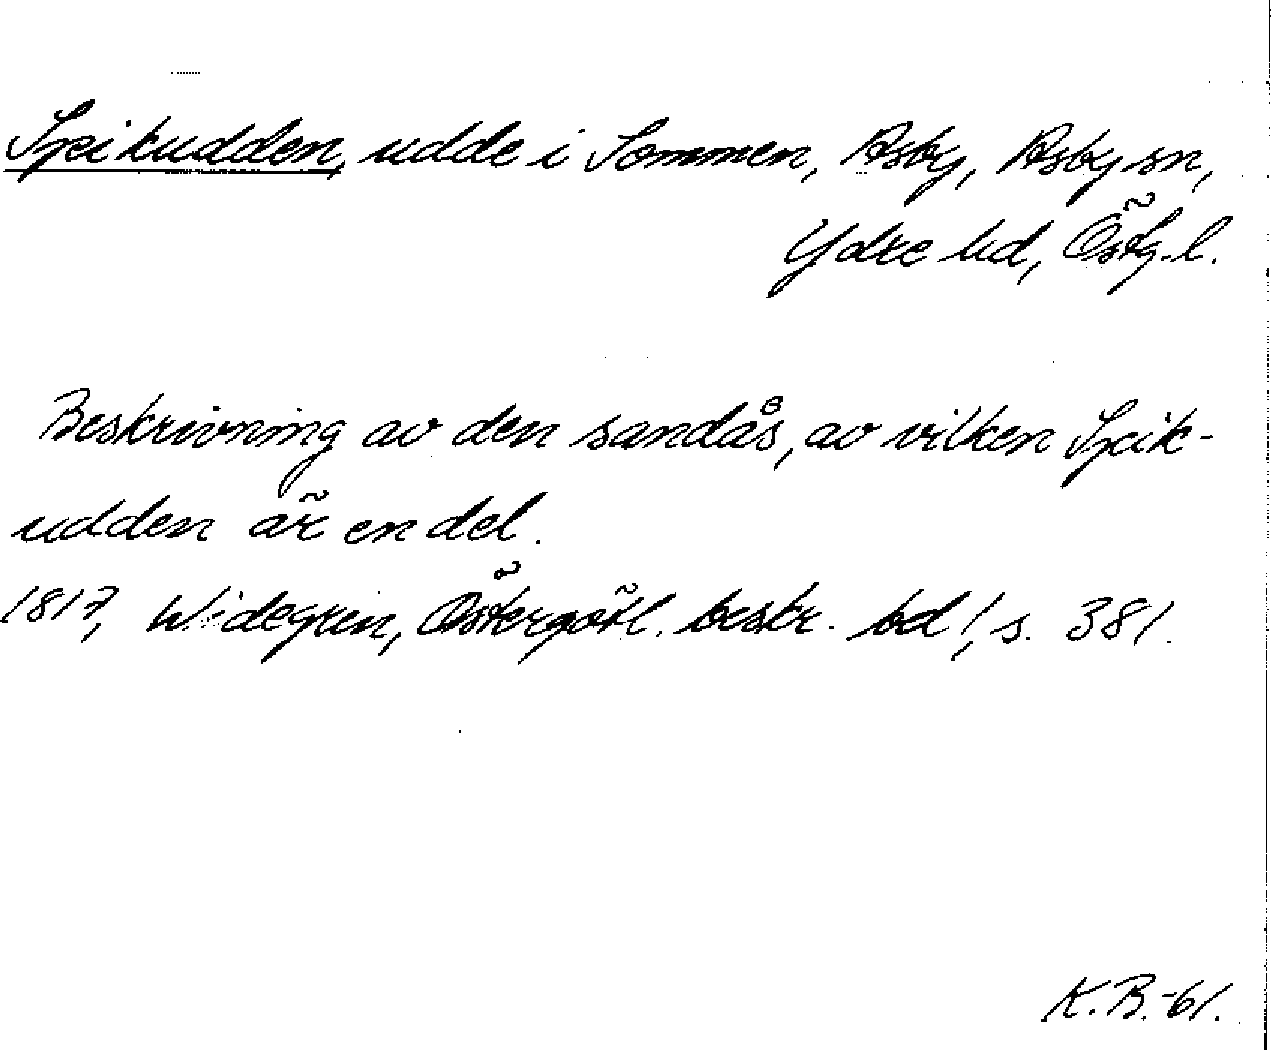 Speikudden, udde i Sommen, Asby, Asby sn,
Ydre hd, Östg. l.
Beskrivning av den sandås, av vilken Speik-
udden är en del.
1817, Widegren, Östergötl. beskr. bd 1, s. 381.
K.B. -61.